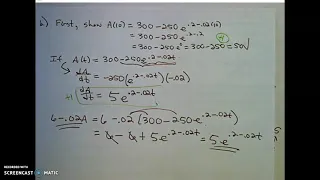 b) First, show A(10) = 300-250e^.2-.02(10)
= 300-250e^.2-.2
= 300-250e^0 = 300-250 = 50 √
If A(t) = 300-250e^.2-.02t
dA/dt = -250(e^.2-.02t)(-.02)
+1 dA/dt = 5e^.2-.02t
6-.02A = 6-.02(300-250e^.2-.02t)
= 6-6+5e^.2-.02t = 5e^.2-.02t
RECORDED WITH
SCREENCAST-O-MATIC